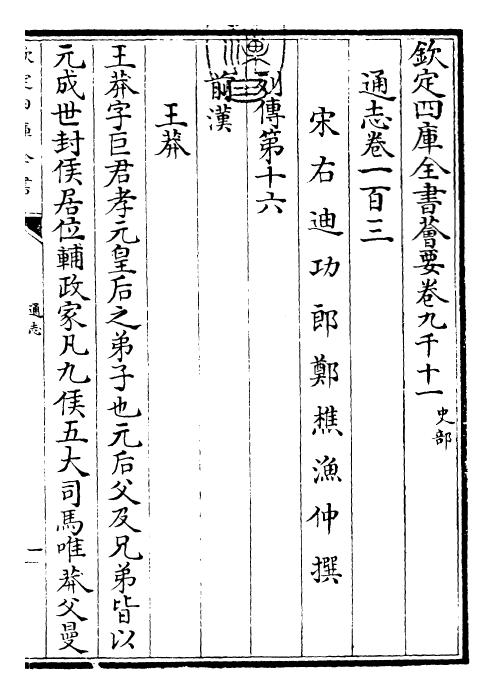 欽定四庫全書薈要卷九千十一
史部
通志卷一百三
宋右迪功郎鄭樵漁仲撰
列傳第十六
前漢
王莽
王莽字巨君孝元皇后之弟子也元后父及兄弟皆以
元成世封侯居位輔政家凡九侯五大司馬唯莽父曼
欽定四庫全書
通志
一